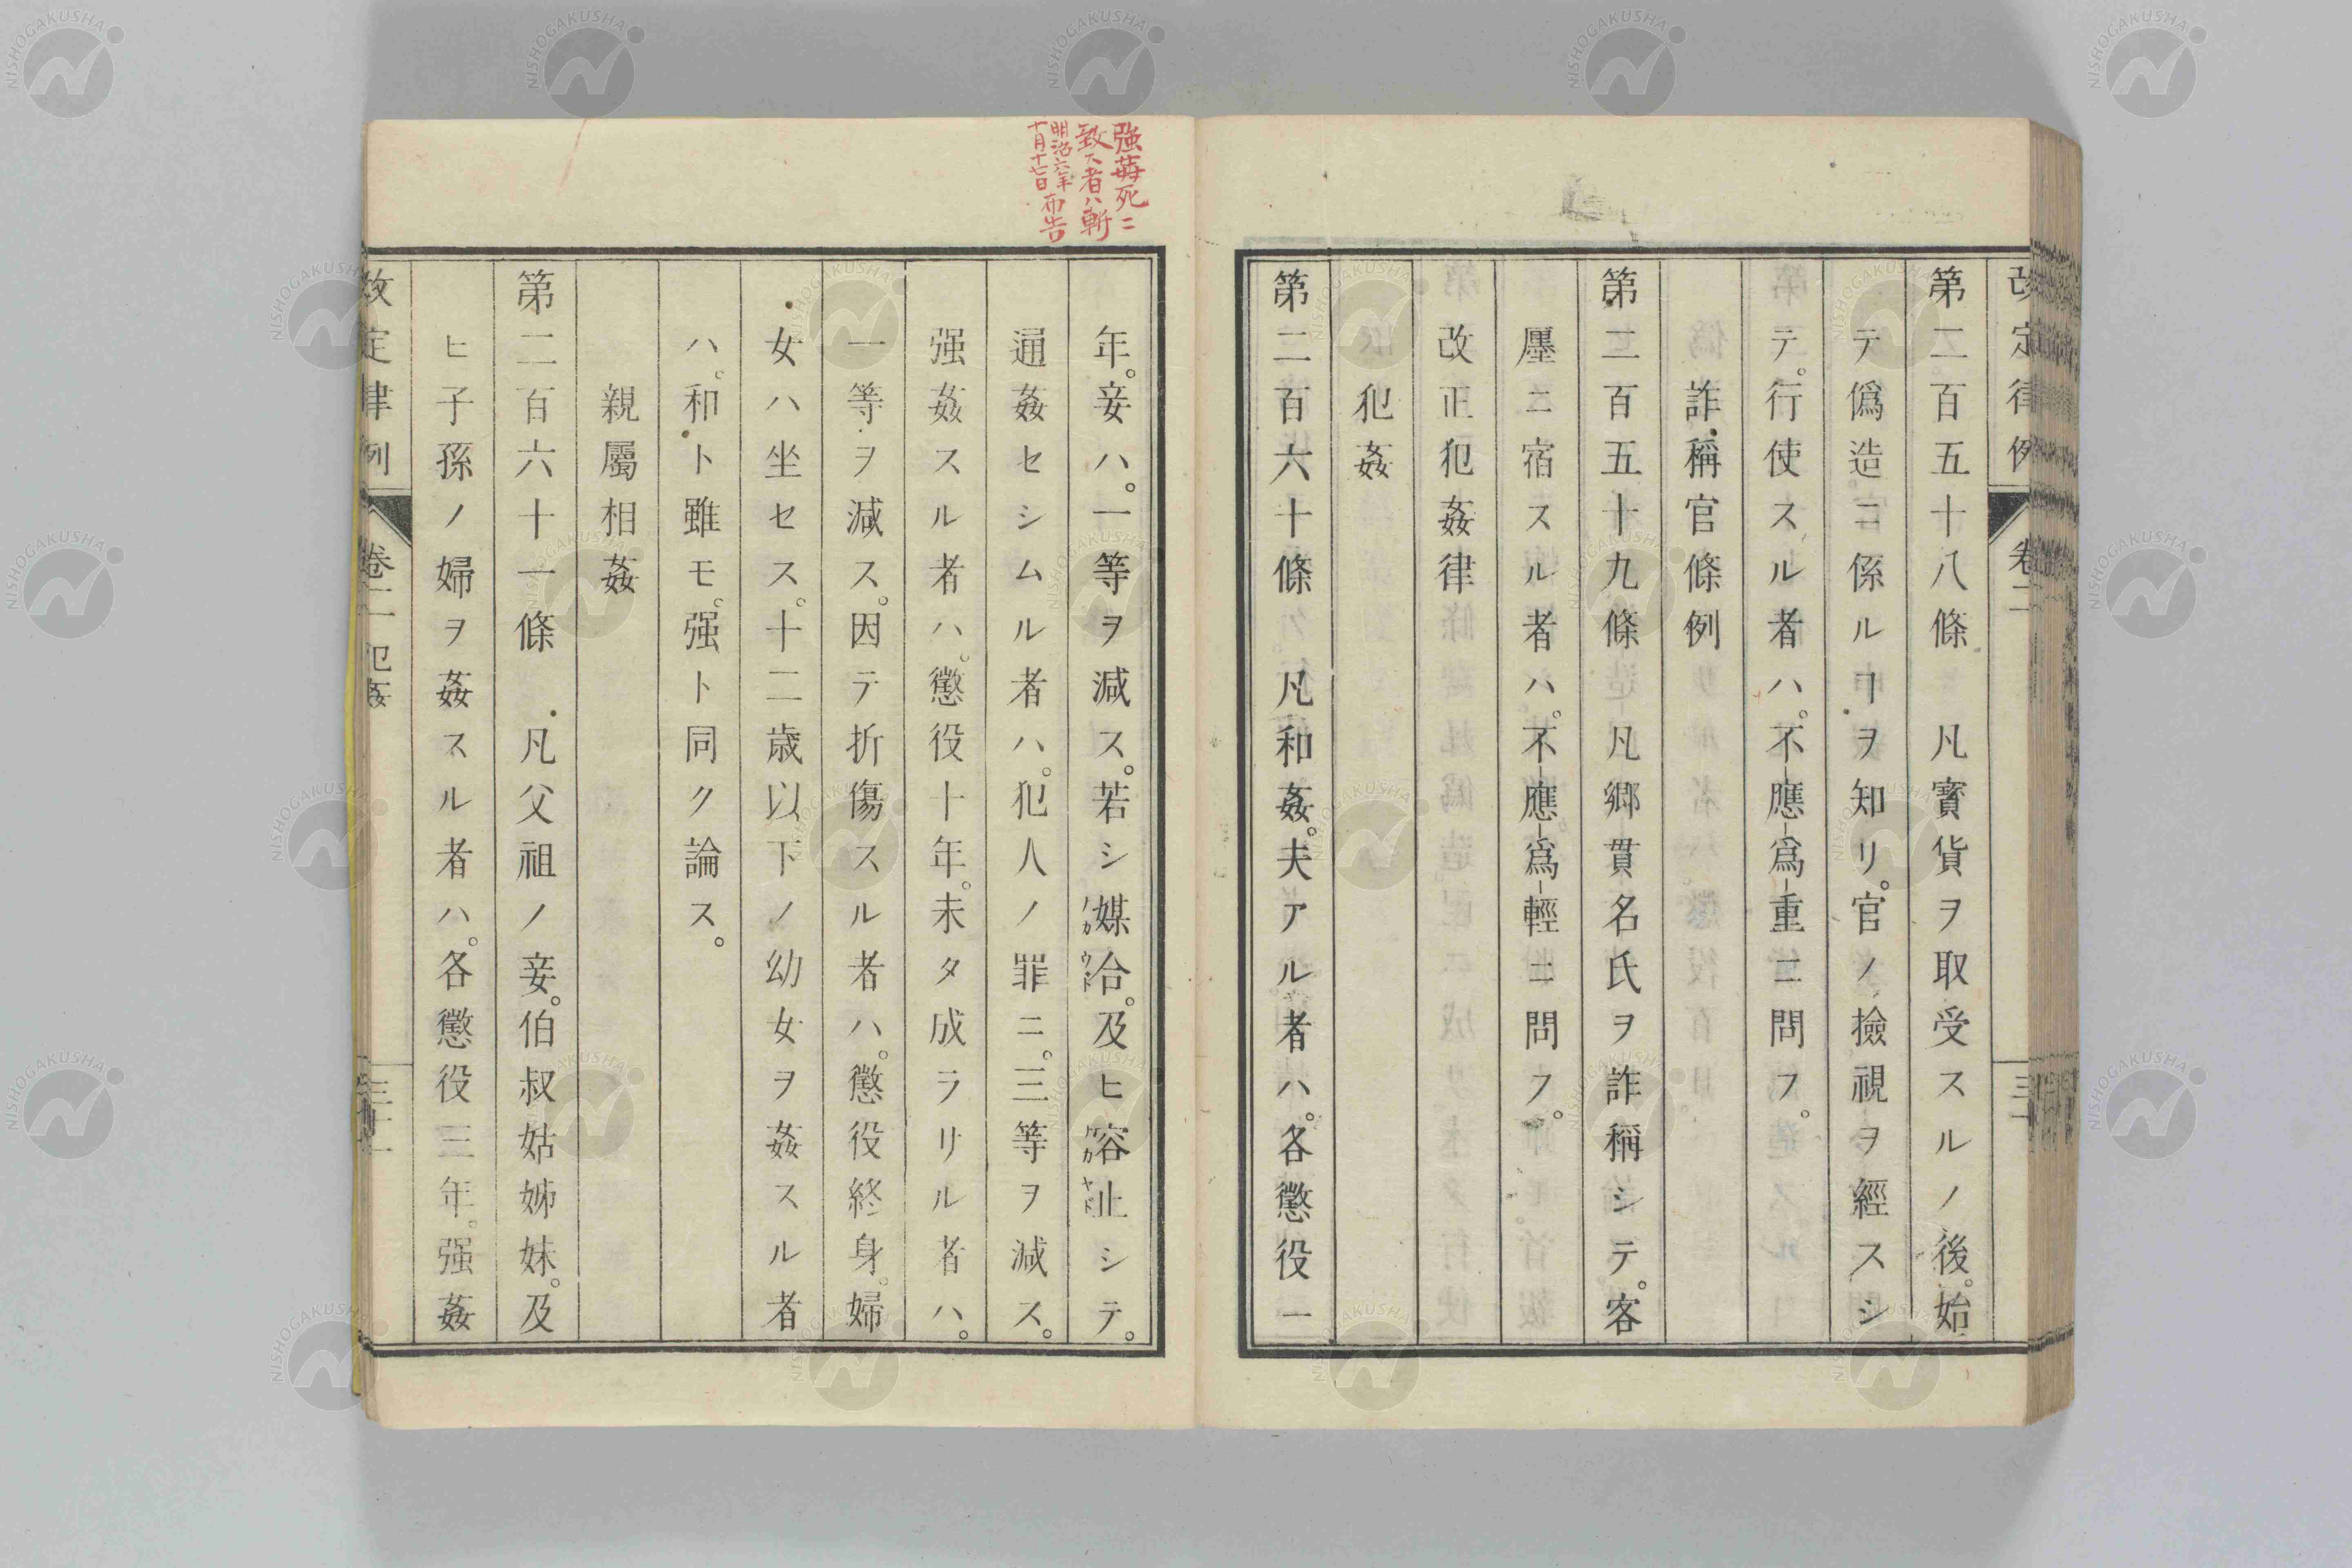 改定律例 卷二
第二百五十八條　凡寳貨ヲ取受スルノ後。始
テ僞造ニ係ルヿヲ知リ。官ノ撿視ヲ經スシ
テ。行使スル者ハ。不應爲重ニ問フ。
詐稱官條例
第二百五十九條　凡郷貫名氏ヲ詐稱シテ。客
廛ニ宿スル者ハ。不應爲輕ニ問フ。
改正犯姦律
犯姦
第二百六十條　凡和姦。夫アル者ハ。各懲役一
強姦死ニ
致ス者ハ斬
明治六年
十月十七日布告
年。妾ハ。一等ヲ減ス。若シ媒合。及ヒ容止シテ。
通姦セシムル者ハ。犯人ノ罪ニ。三等ヲ減ス。
强姦スル者ハ。懲役十年。未タ成ラサル者ハ。
一等ヲ減ス。因テ折傷スル者ハ。懲役終身。婦
女ハ坐セス。十二歳以下ノ幼女ヲ姦スル者
ハ。和ト雖モ。强ト同ク論ス。
親屬相姦
第二百六十一條　凡父祖ノ妾。伯叔姑姊妹。及
ヒ子孫ノ婦ヲ姦スル者ハ。各懲役三年。强姦
改定律例 卷二 犯姦
NISHOGAKUSHA